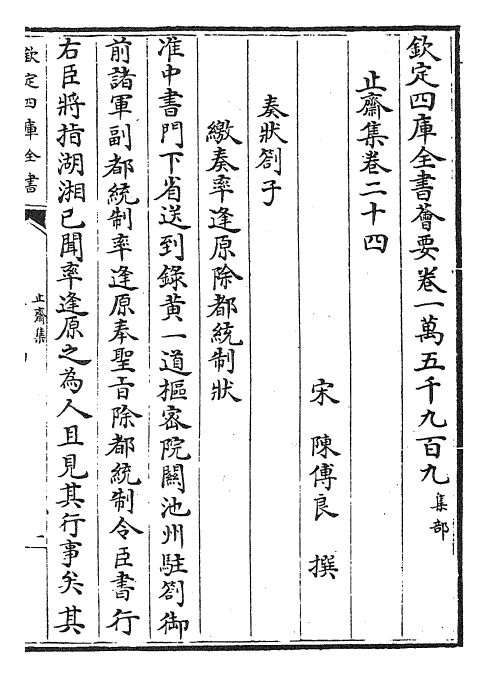 欽定四庫全書薈要卷一萬五千九百九 集部
止齋集卷二十四
宋 陳傅良 撰
奏狀劄子
繳奏率逢原除都統制狀
准中書門下省送到錄黃一道樞密院關池州駐劄御
前諸軍副都統制率逢原奉聖旨除都統制令臣書行
右臣將指湖湘已聞率逢原之為人且見其行事矣其
欽定四庫全書
止齋集